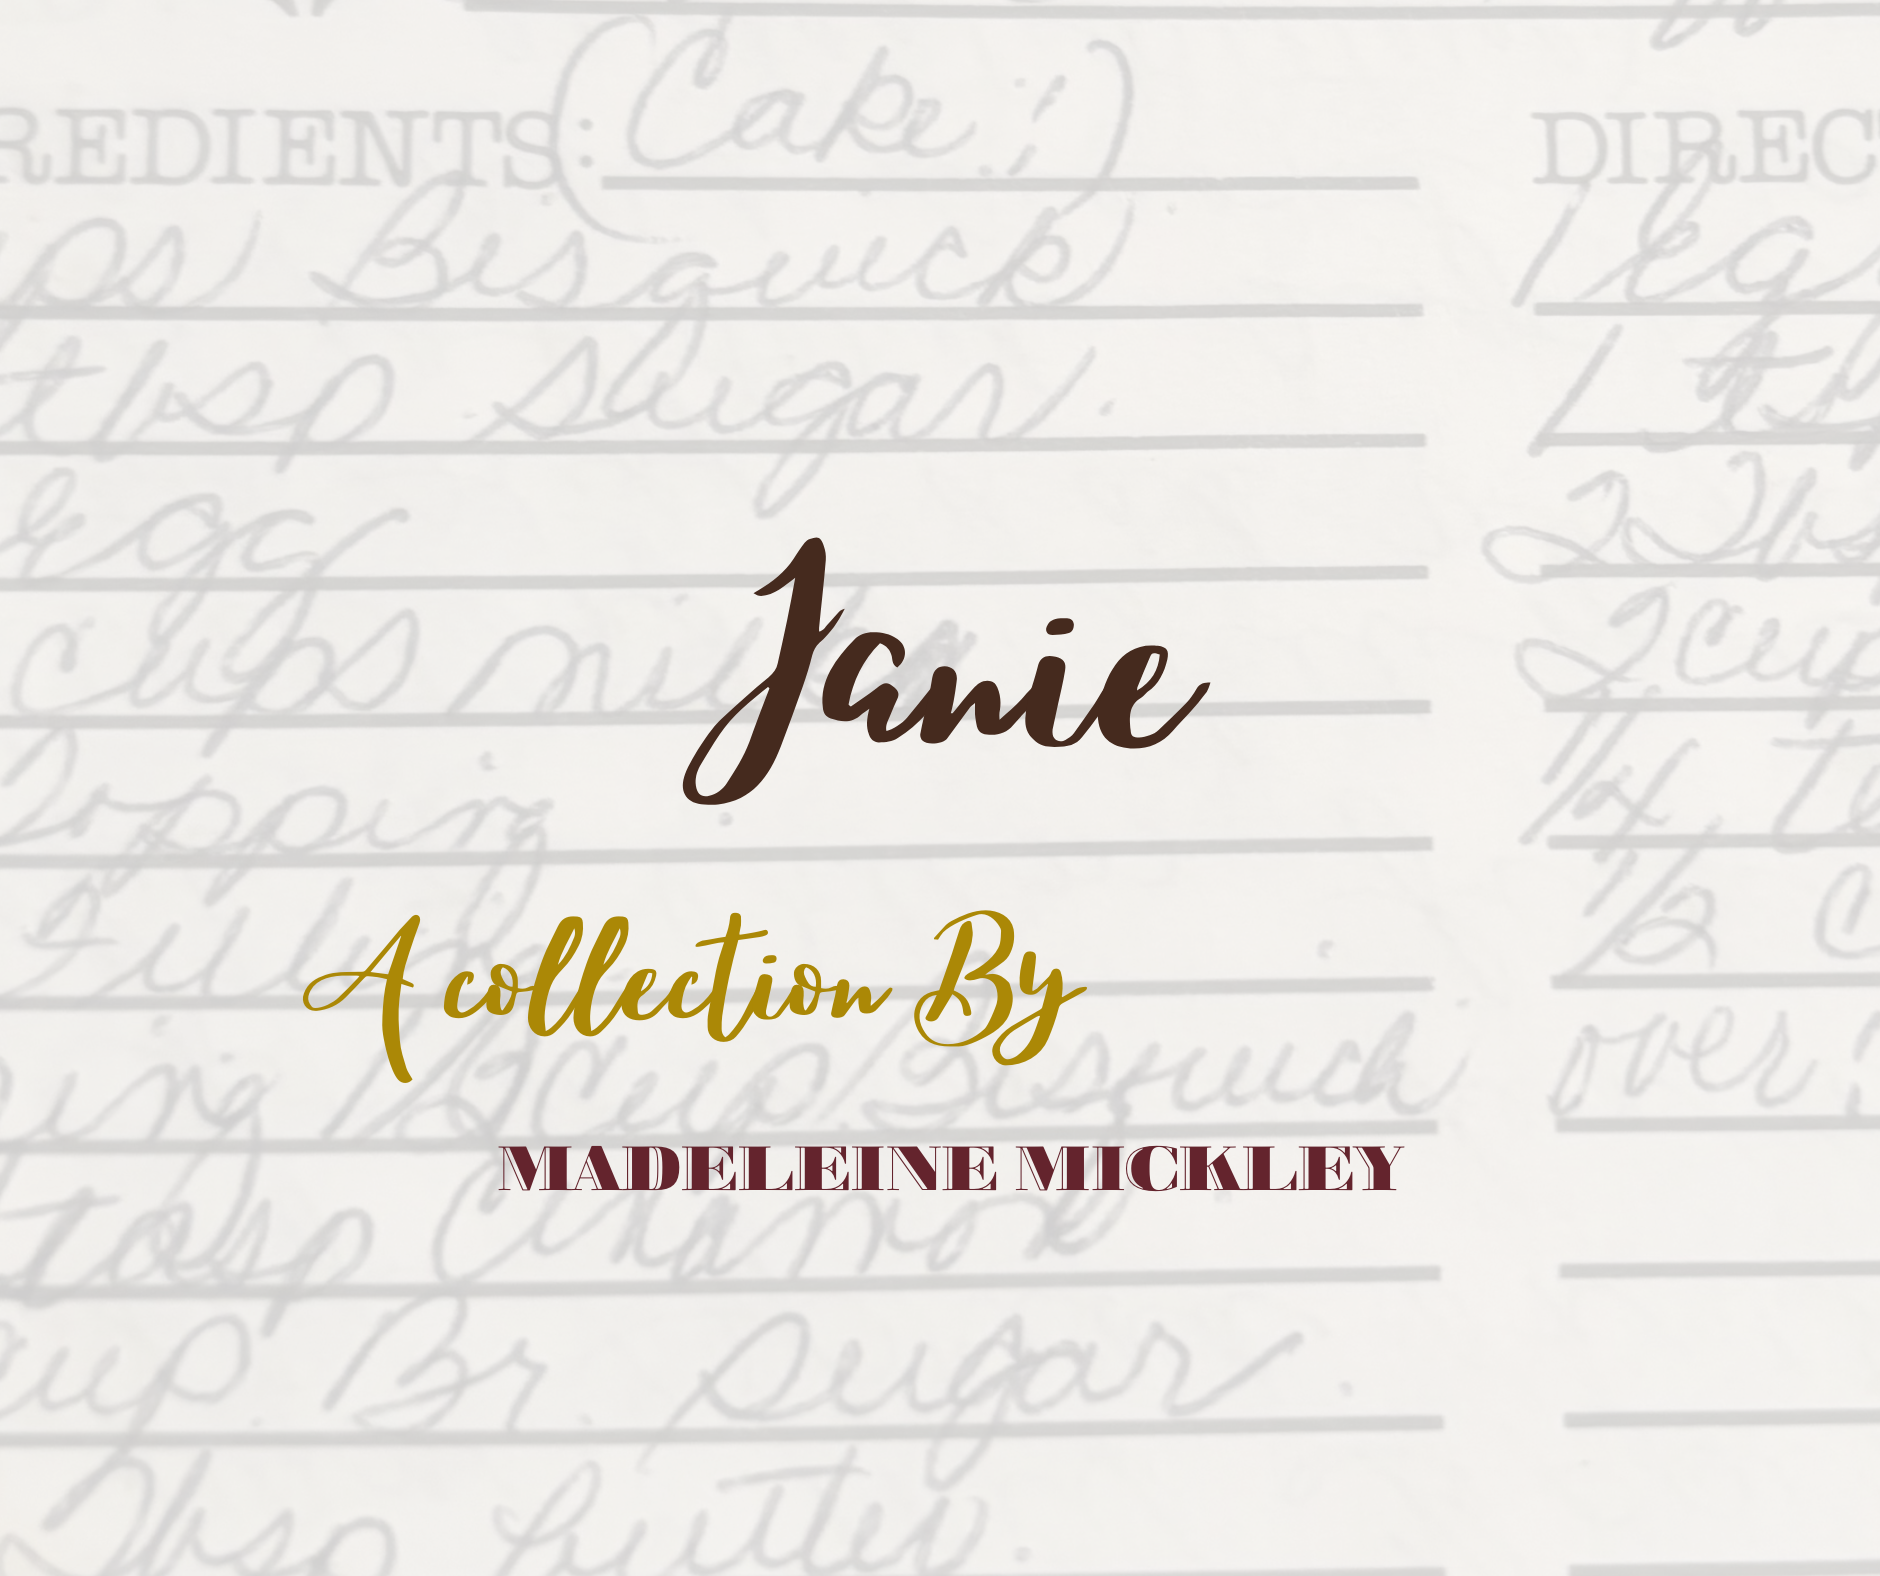 (Cake;)
REDIENTS:
DIREC
ps Bisquick
1 eg
tbsp sugar.
1 tb
egg
2 Tbs
cups milk
2 cup
Topping
1/4 te
A collection By
1/2 c
Janie
1/2 cup Bisquick
over;
MADELEINE MICKLEY
tbsp Cinamon
cup Br. sugar.
Tbsp butter.